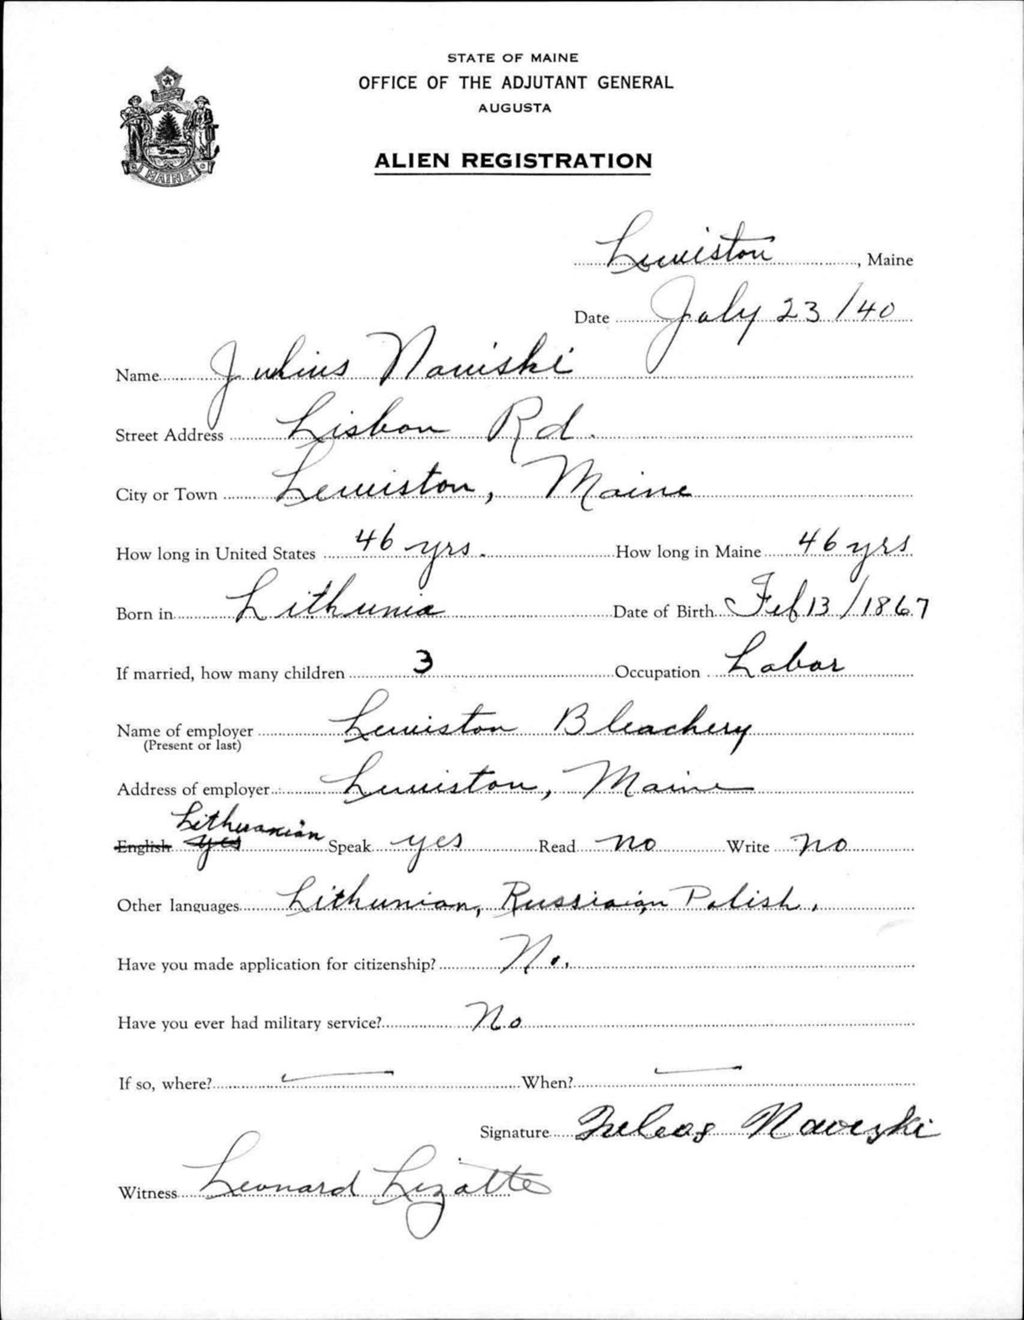 STATE OF MAINE
OFFICE OF THE ADJUTANT GENERAL
AUGUSTA
ALIEN REGISTRATION
MAINE
Lewiston, Maine
Date July 23/40
Name Julius Naviski
Street Address Lisbon Rd.
City or Town Lewiston, Maine
How long in United States 46 yrs. How long in Maine 46 yrs
Born in Lithunia Date of Birth Feb 13/1867
If married, how many children 3 Occupation Labor
Name of employer Lewiston Bleachery
(Present or last)
Address of employer Lewiston, Maine
Lithuanian
English yes Speak yes Read no Write no
Other languages Lithunian, Russiaign Polish.
Have you made application for citizenship? No.
Have you ever had military service? No
If so, where? — When? —
Signature Naviski
Witness Leonard Lizotte